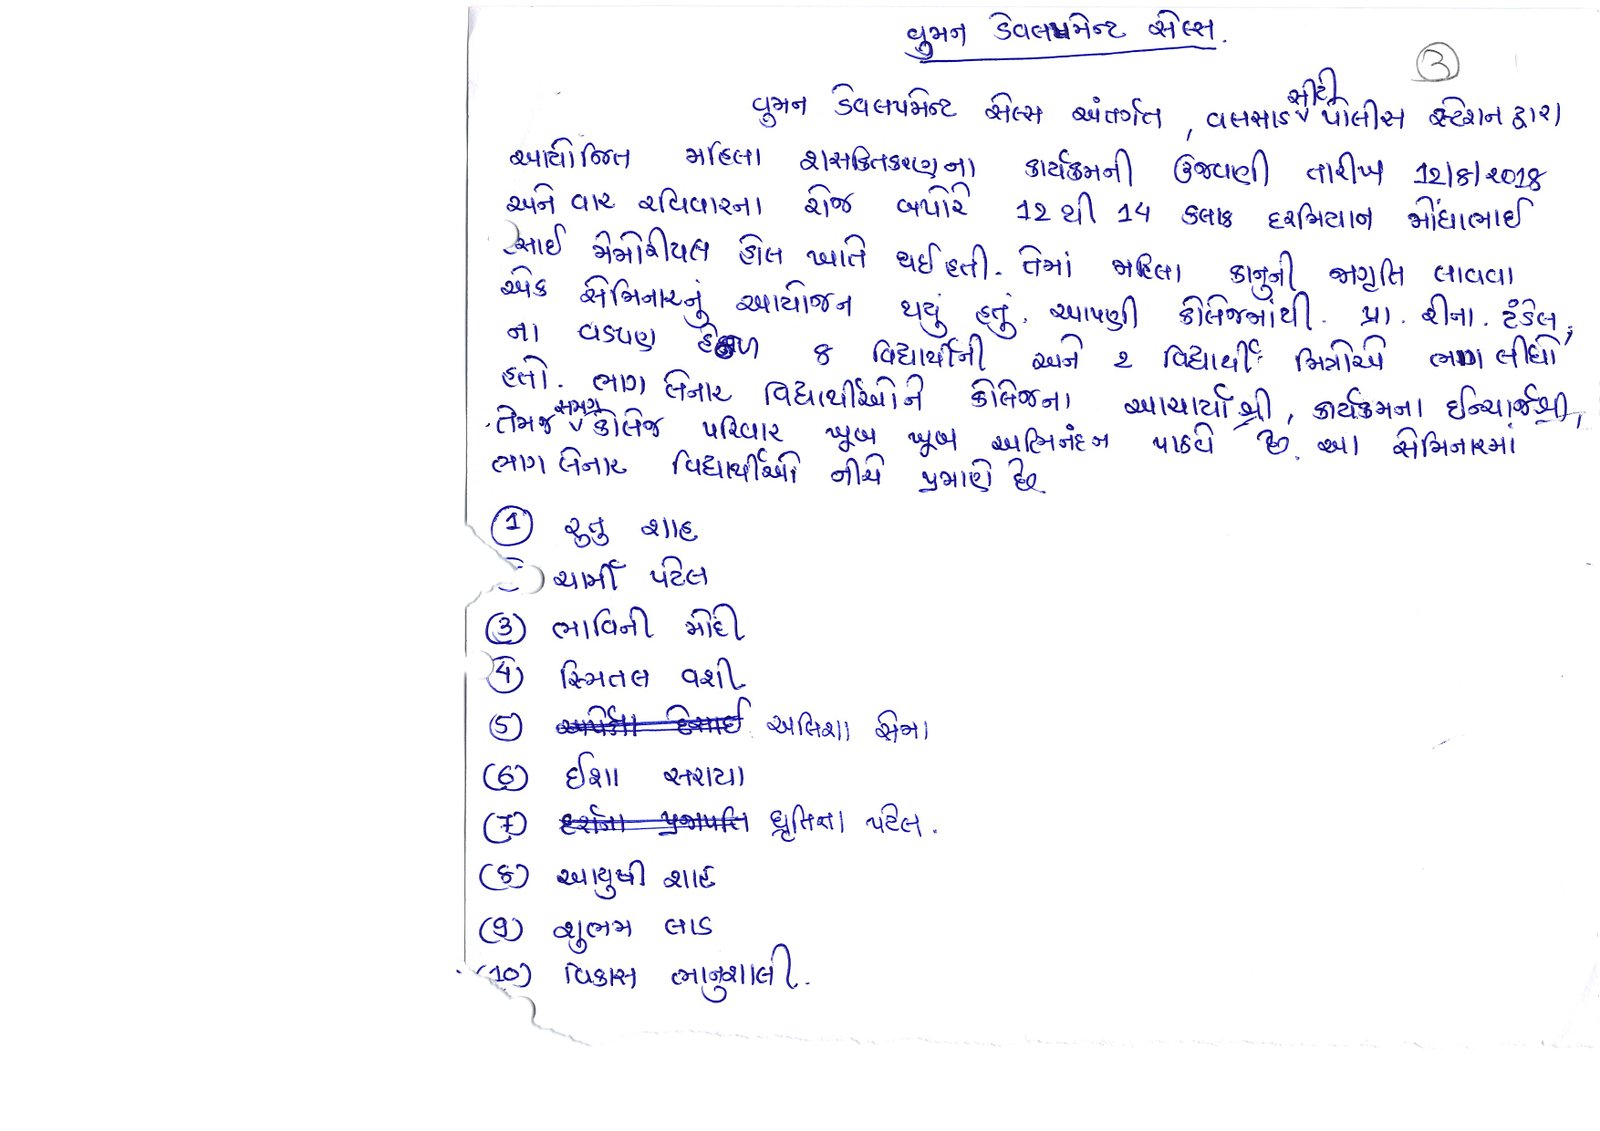 વુમન ડેવલપમેન્ટ સેલ્સ.
૩
વુમન ડેવલપમેન્ટ સેલ્સ અંતર્ગત, વલસાડ સીટી પોલીસ સ્ટેશન દ્વારા
આયોજિત મહિલા શસક્તિકરણના કાર્યક્રમની ઉજવણી તારીખ 12/8/2018
અને વાર રવિવારના રોજ બપોરે 12 થી 14 કલાક દરમિયાન મોંઘાભાઈ
સાઈ મેમોરીયલ હોલ ખાતે થઈ હતી. તેમાં મહિલા કાનુની જાગૃતિ લાવવા
એક સેમિનારનું આયોજન થયું હતું. આપણી કોલેજમાંથી. પ્રા. રીના. ટંડેલ,
ના વડપણ હેઠળ 8 વિદ્યાર્થીની અને ૨ વિદ્યાર્થી મિત્રોએ ભાગ લીધો
હતો. ભાગ લેનાર વિદ્યાર્થીઓને કોલેજના આચાર્યાશ્રી, કાર્યક્રમના ઈન્ચાર્જશ્રી,
તેમજ સમગ્ર કોલેજ પરિવાર ખૂબ ખૂબ અભિનંદન પાઠવે છે. આ સેમિનારમાં
ભાગ લેનાર વિદ્યાર્થીઓ નીચે પ્રમાણે છે
1 રુતુ શાહ
ચાર્મી પટેલ
3 ભાવિની મોદી
4 સ્મિતલ વશી
5 અલિશા સેમા
(6) ઈશા સરાયા
(7) દર્શના પ્રજાપતિ ધ્રૃતિકા પટેલ.
(8) આયુષી શાહ
(9) શુભમ લાડ
(10) વિકાસ ભાનુશાલી.